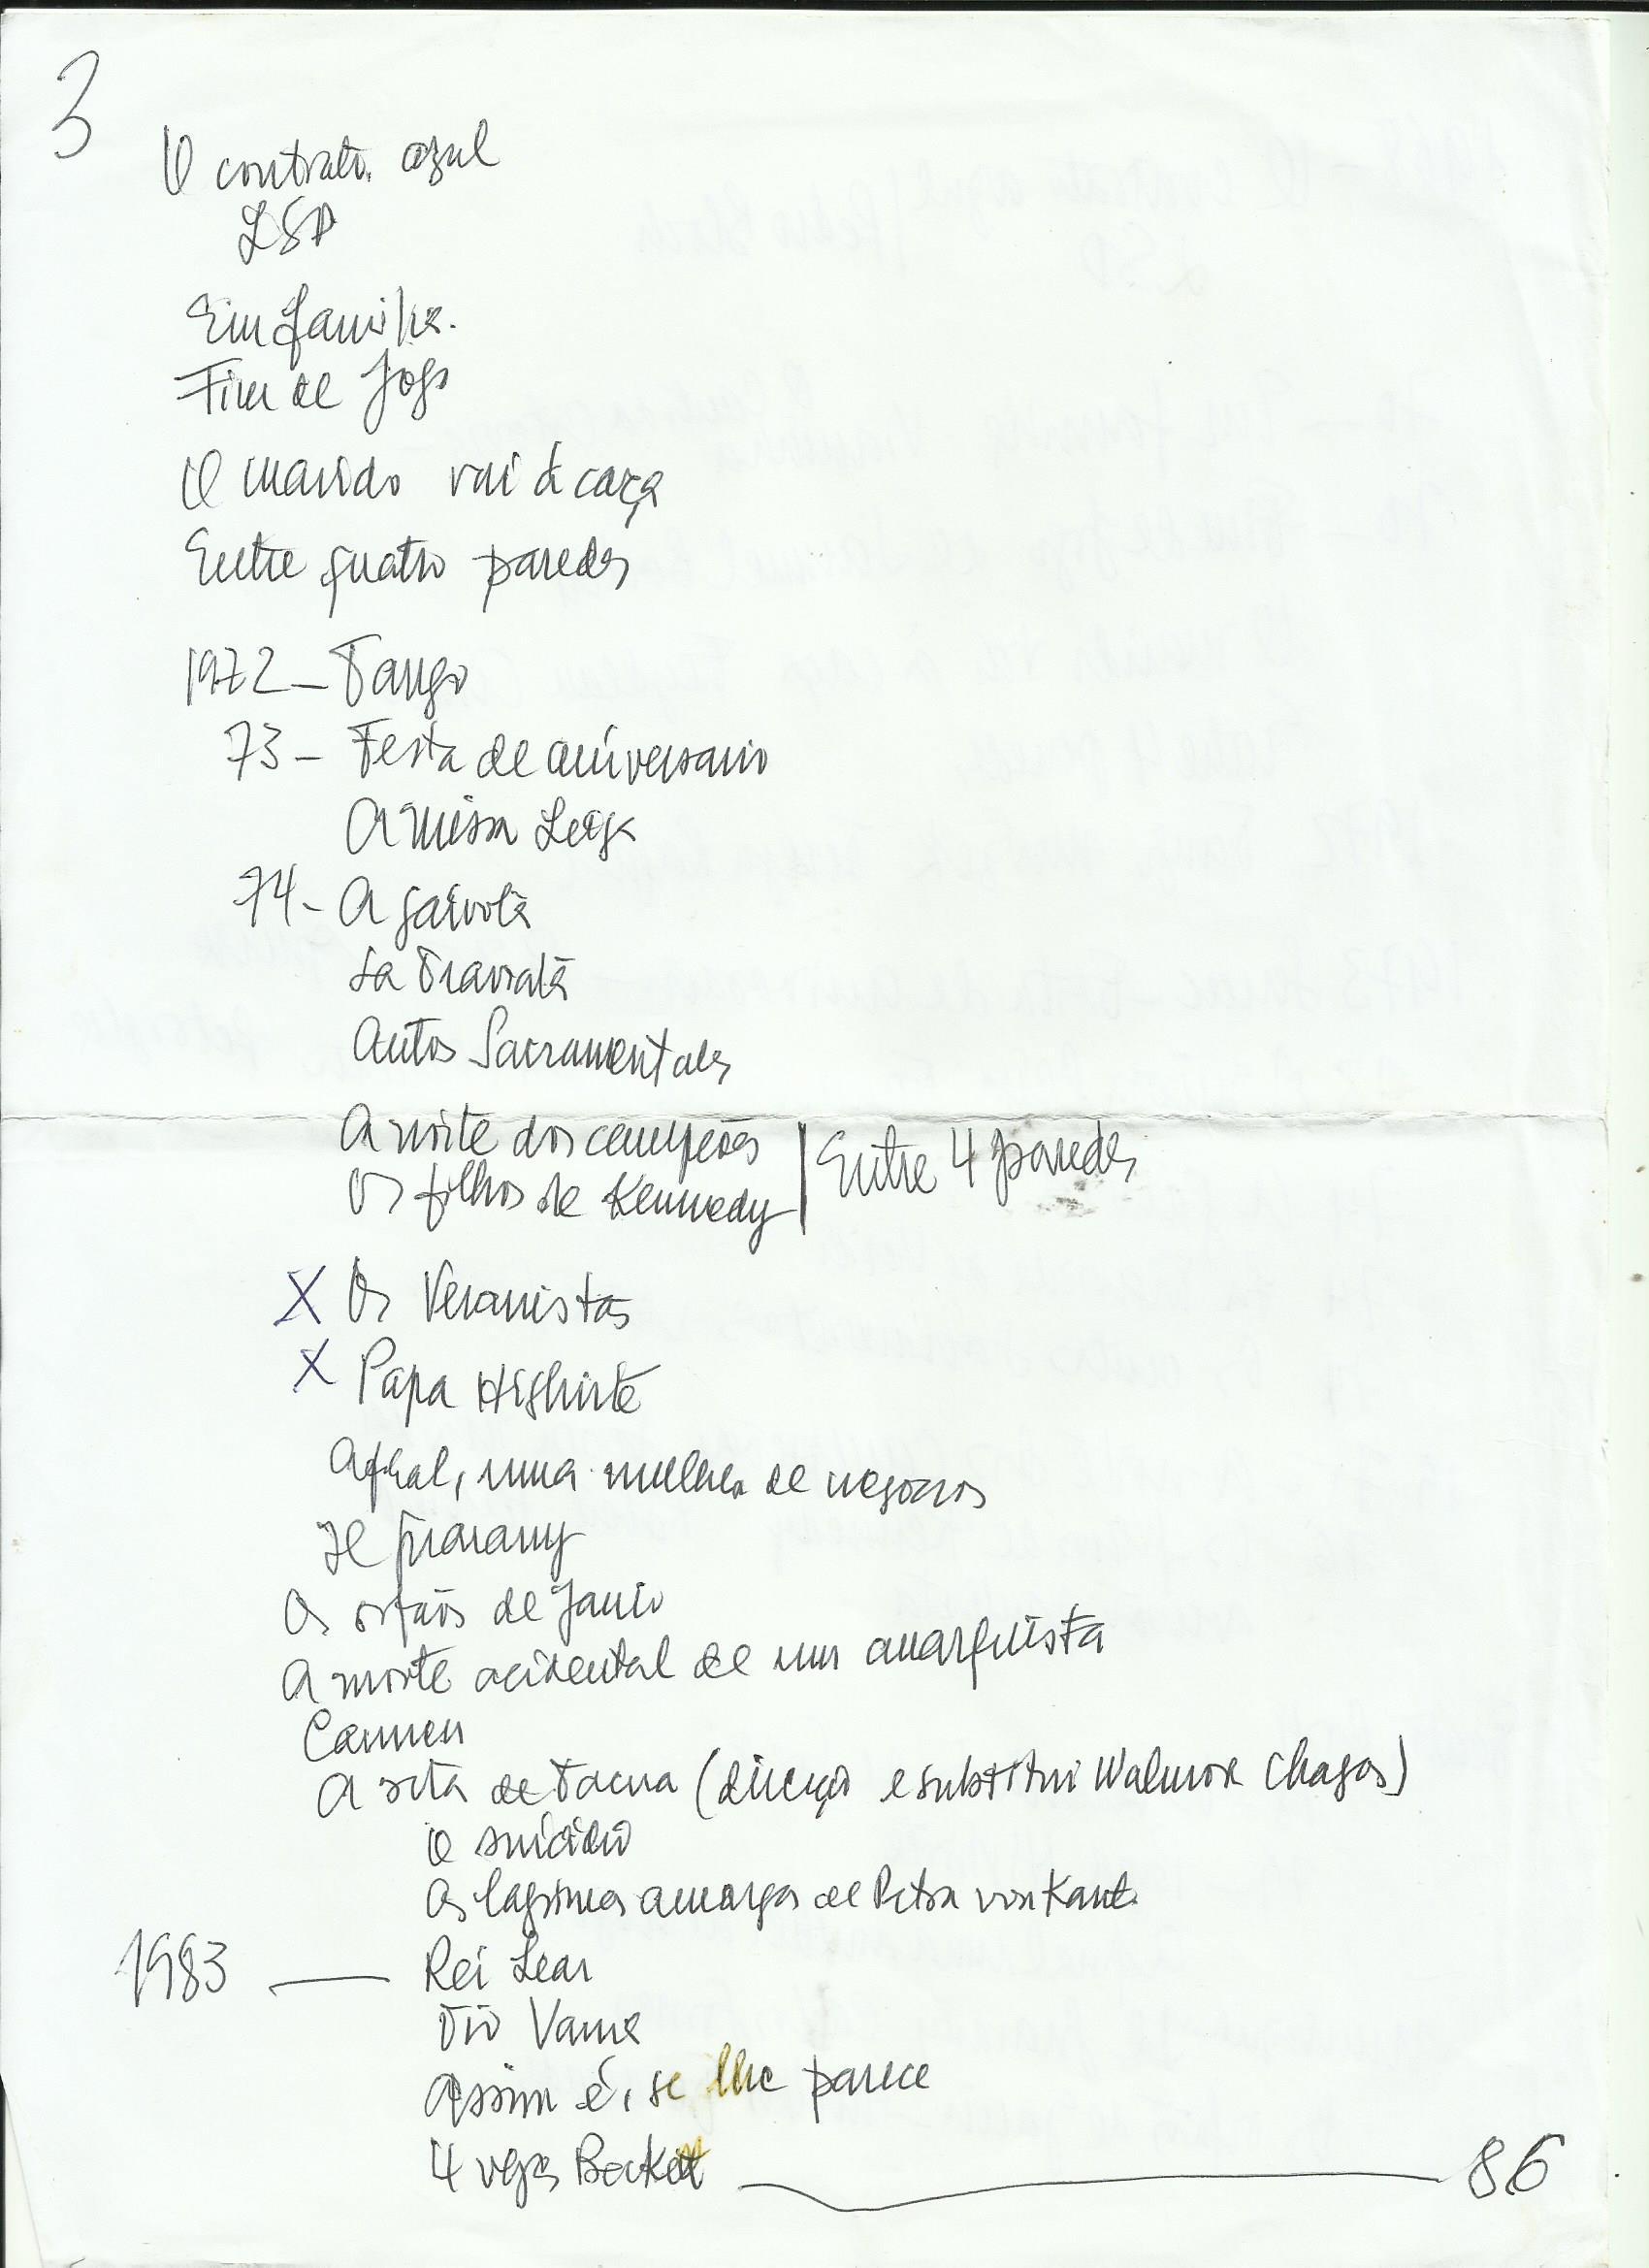 3
O contrato azul
LSD
Em familia.
Fim de Jogo
O marido vai à caça
Entre quatro paredes
1972 - Tango
73 - Festa de aniversario
A missa Leiga
74 - A gaivota
La Traviata
Autos Sacramentales
A noite dos campeões
Os filhos de Kennedy | Entre 4 paredes
X Os Veranistas
X Papa Highirte
Afinal, uma mulher de negocios
Il Guarany
Os orfãos de Janio
A morte acidental de um anarquista
Carmen
A srta de Tacna (direção e substitui Walmor Chagas)
O suicidio
As lagrimas amargas de Petra von Kant.
1983 — Rei Lear
Tio Vania
Assim é, se lhe parece
4 vezes Beckett — 86